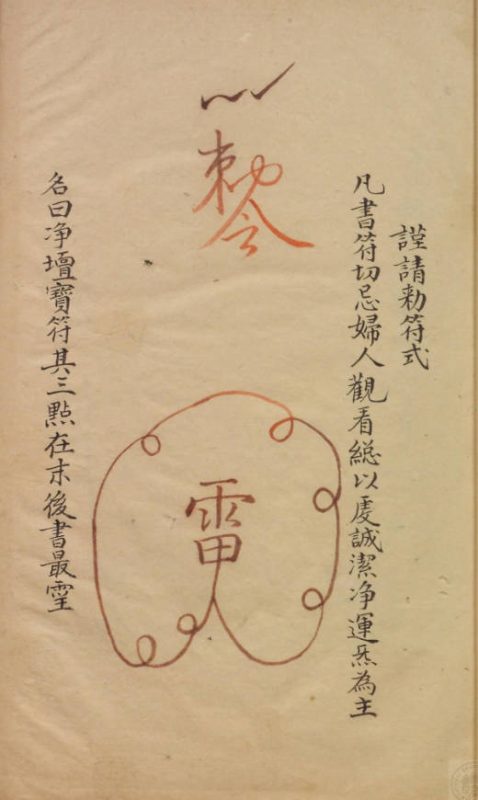 謹請勅符式
凡書符切忌婦人觀看緫以虔誠潔净運炁為主
勅令
雷
名曰净壇寶符其三點在末後書最靈